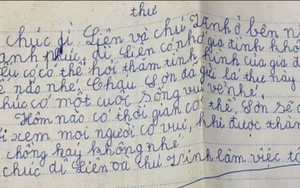 thư
chúc dì Liên và chú Trinh ở bên n
hạnh phúc, dì Liên có nhớ gia đình khôn
ếu có có thể hỏi thăm tình hình của gia đ
ế nào nhé. Cháu Sơn đã gửi lá thư này
chúc có một cuộc sống vui vẻ nhé,
Hôm nào có thời gian có thể, Sơn sẽ
ỏi xem mọi người có vui, khi được thăm
chồng hay không nhé
chúc dì Liên và chú Trinh làm việc tố